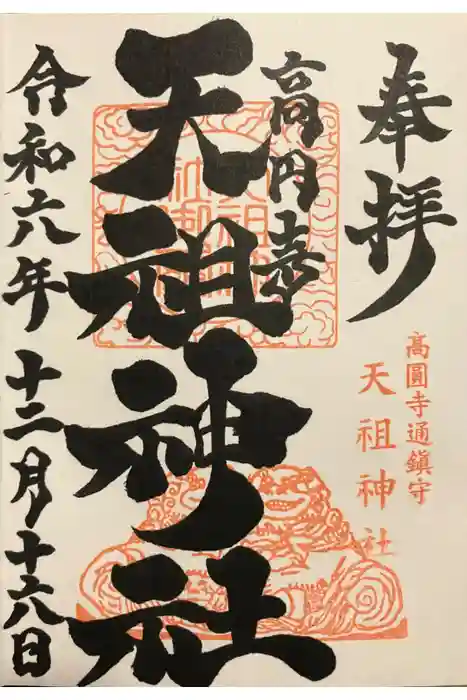 奉拝
高圓寺通鎮守
天祖神社
高円寺
天祖神社
令和六年 十二月十六日